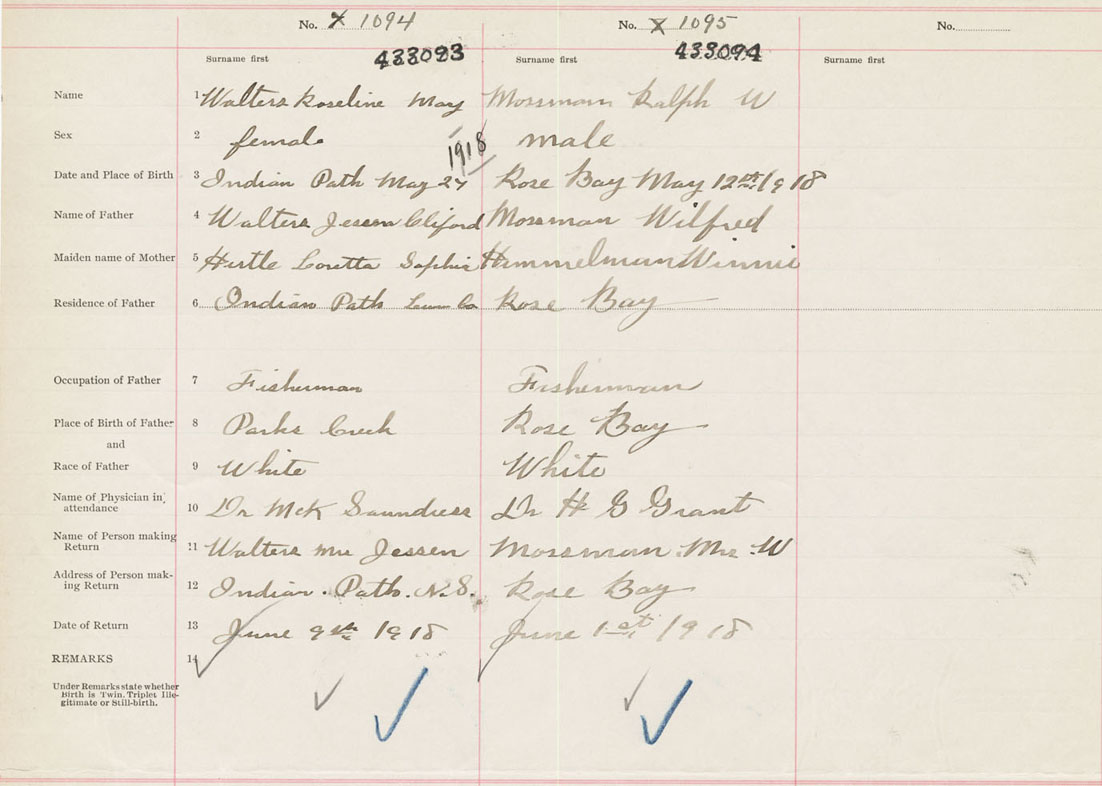 No. X 1094 No. X 1095 No.
433093 433094
Surname first Surname first Surname first
Name 1 Walters Roseline May Mossman Ralph W
Sex 2 female male
1918
Date and Place of Birth 3 Indian Path May 27 Rose Bay May 12th 1918
Name of Father 4 Walters Jessen Cliford Mossman Wilfred
Maiden name of Mother 5 Hirtle Loretta Sophia Himmelman Winnie
Residence of Father 6 Indian Path Lun Co Rose Bay
Occupation of Father 7 Fisherman Fisherman
Place of Birth of Father 8 Parks Creek Rose Bay
and
Race of Father 9 White White
Name of Physician in
attendance 10 Dr McK Saunders Dr H G Grant
Name of Person making
Return 11 Walters Mrs Jessen Mossman Mrs W
Address of Person mak-
ing Return 12 Indian Path N.S. Rose Bay
Date of Return 13 June 9th 1918 June 1st 1918
REMARKS 14
Under Remarks state whether
Birth is Twin, Triplet Ille-
gitimate or Still-birth.